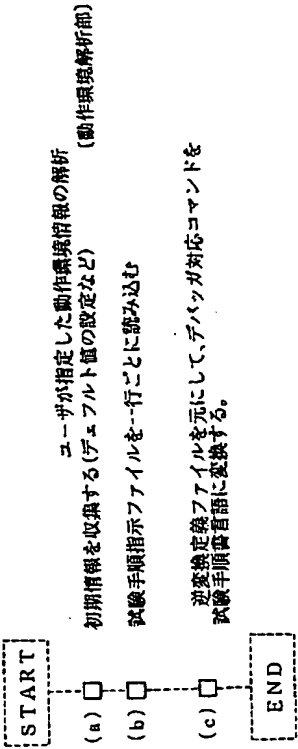 START
ユーザが指定した動作環境情報の解析
(a) 初期情報を収集する(デェフルト値の設定など) [動作環境解析部]
(b) 試験手順指示ファイルを一行ごとに読み込む
(c) 逆変換定義ファイルを元にして、デバッガ対応コマンドを
試験手順書言語に変換する。
END